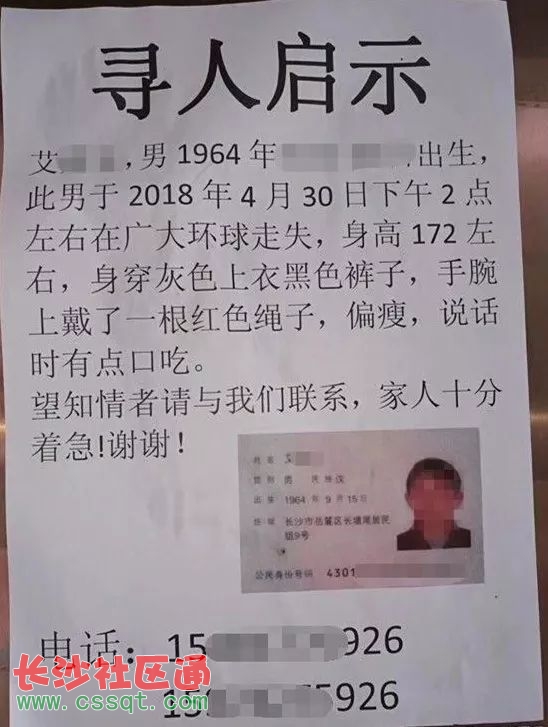 寻人启示
艾 ,男 1964 年 出生，
此男于 2018 年 4 月 30 日下午 2 点
左右在广大环球走失，身高 172 左
右，身穿灰色上衣黑色裤子，手腕
上戴了一根红色绳子，偏瘦，说话
时有点口吃。
望知情者请与我们联系，家人十分
着急!谢谢！
姓名
性别 男 民族 汉
出生 1964 年 9 月 15 日
住址 长沙市岳麓区长塘尾居民
组9号
公民身份号码 4301
电话：15 5926
15 5926
长沙社区通
www.cssqt.com